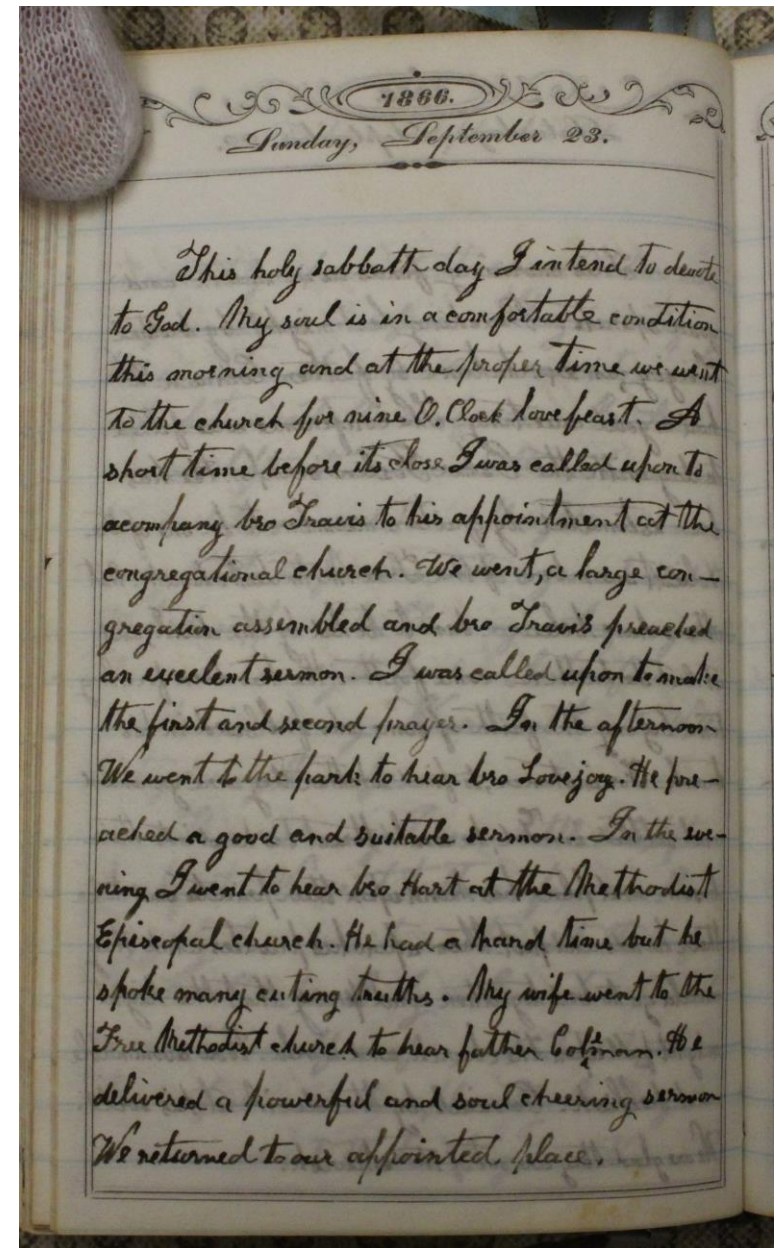 1866.
Sunday, September 23.
This holy sabbath day I intend to devote
to God. My soul is in a comfortable condition
this morning and at the proper time we went
to the church for nine O,Clock lovefeast. A
short time before its close I was called upon to
acompany bro Travis to his appointment at the
congregational church. We went, a large con-
gregation assembled and bro Travis preached
an excelent sermon. I was called upon to make
the first and second prayer. In the afternoon
We went to the park to hear bro Lovejoy. He pre-
ached a good and suitable sermon. In the eve-
ning I went to hear bro Hart at the Methodist
Episcopal church. He had a hand time but he
spoke many cuting truths. My wife went to the
Free Methodist church to hear father Coleman. He
delivered a powerful and soul cheering sermon
We returned to our appointed place.